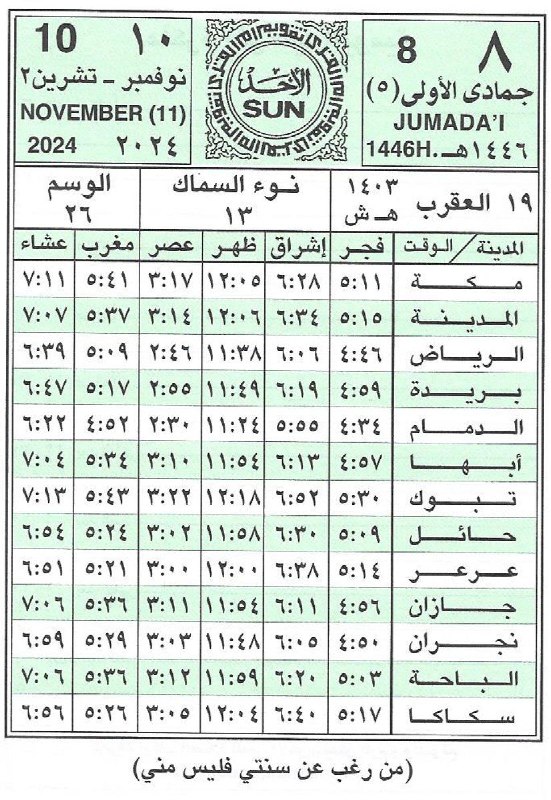 ٨ 8
جمادى الأولى (٥)
JUMADA'I
١٤٤٦هـ 1446H.
الأحد
SUN
١٠ 10
نوفمبر - تشرين٢
NOVEMBER (11)
٢٠٢٤ 2024
١٩ العقرب ١٤٠٣ هـ ش
نوء السماك ١٣
الوسم ٢٦
المدينة / الوقت فجر إشراق ظهر عصر مغرب عشاء
مكة ٥:١١ ٦:٢٨ ١٢:٠٥ ٣:١٧ ٥:٤١ ٧:١١
المدينة ٥:١٥ ٦:٣٤ ١٢:٠٦ ٣:١٤ ٥:٣٧ ٧:٠٧
الرياض ٤:٤٦ ٦:٠٦ ١١:٣٨ ٢:٤٦ ٥:٠٩ ٦:٣٩
بريدة ٤:٥٩ ٦:١٩ ١١:٤٩ ٢:٥٥ ٥:١٧ ٦:٤٧
الدمام ٤:٣٤ ٥:٥٥ ١١:٢٤ ٢:٣٠ ٤:٥٢ ٦:٢٢
أبها ٤:٥٧ ٦:١٣ ١١:٥٤ ٣:١٠ ٥:٣٤ ٧:٠٤
تبوك ٥:٣٠ ٦:٥٢ ١٢:١٨ ٣:٢٢ ٥:٤٣ ٧:١٣
حائل ٥:٠٩ ٦:٣٠ ١١:٥٨ ٣:٠٢ ٥:٢٤ ٦:٥٤
عرعر ٥:١٤ ٦:٣٨ ١٢:٠٠ ٣:٠٠ ٥:٢١ ٦:٥١
جازان ٤:٥٦ ٦:١١ ١١:٥٤ ٣:١١ ٥:٣٦ ٧:٠٦
نجران ٤:٥٠ ٦:٠٥ ١١:٤٨ ٣:٠٣ ٥:٢٩ ٦:٥٩
الباحة ٥:٠٣ ٦:٢٠ ١١:٥٩ ٣:١٢ ٥:٣٦ ٧:٠٦
سكاكا ٥:١٧ ٦:٤٠ ١٢:٠٤ ٣:٠٥ ٥:٢٦ ٦:٥٦
(من رغب عن سنتي فليس مني)